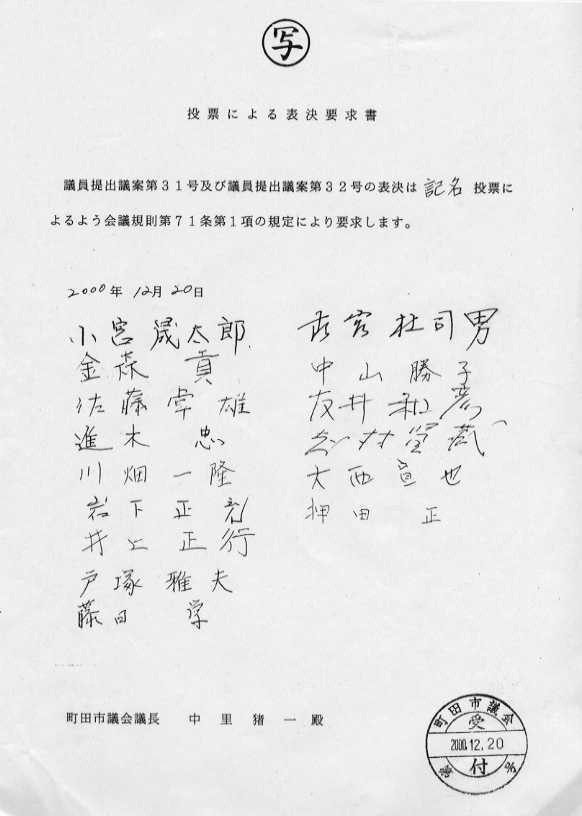 写
投票による表決要求書
議員提出議案第31号及び議員提出議案第32号の表決は 記名 投票に
よるよう会議規則第71条第1項の規定により要求します。
2000年 12月 20日
小宮 晟太郎
金森 貢
佐藤 幸雄
進木 忠
川畑 一隆
岩下 正
井上 正行
戸塚 雅夫
藤田 学
杜司男
中山 勝子
友井 和彦
大西 宣也
押田 正
町田市議会議長 中里猪一殿
町田市議会
受
2000.12.20
付
第 号